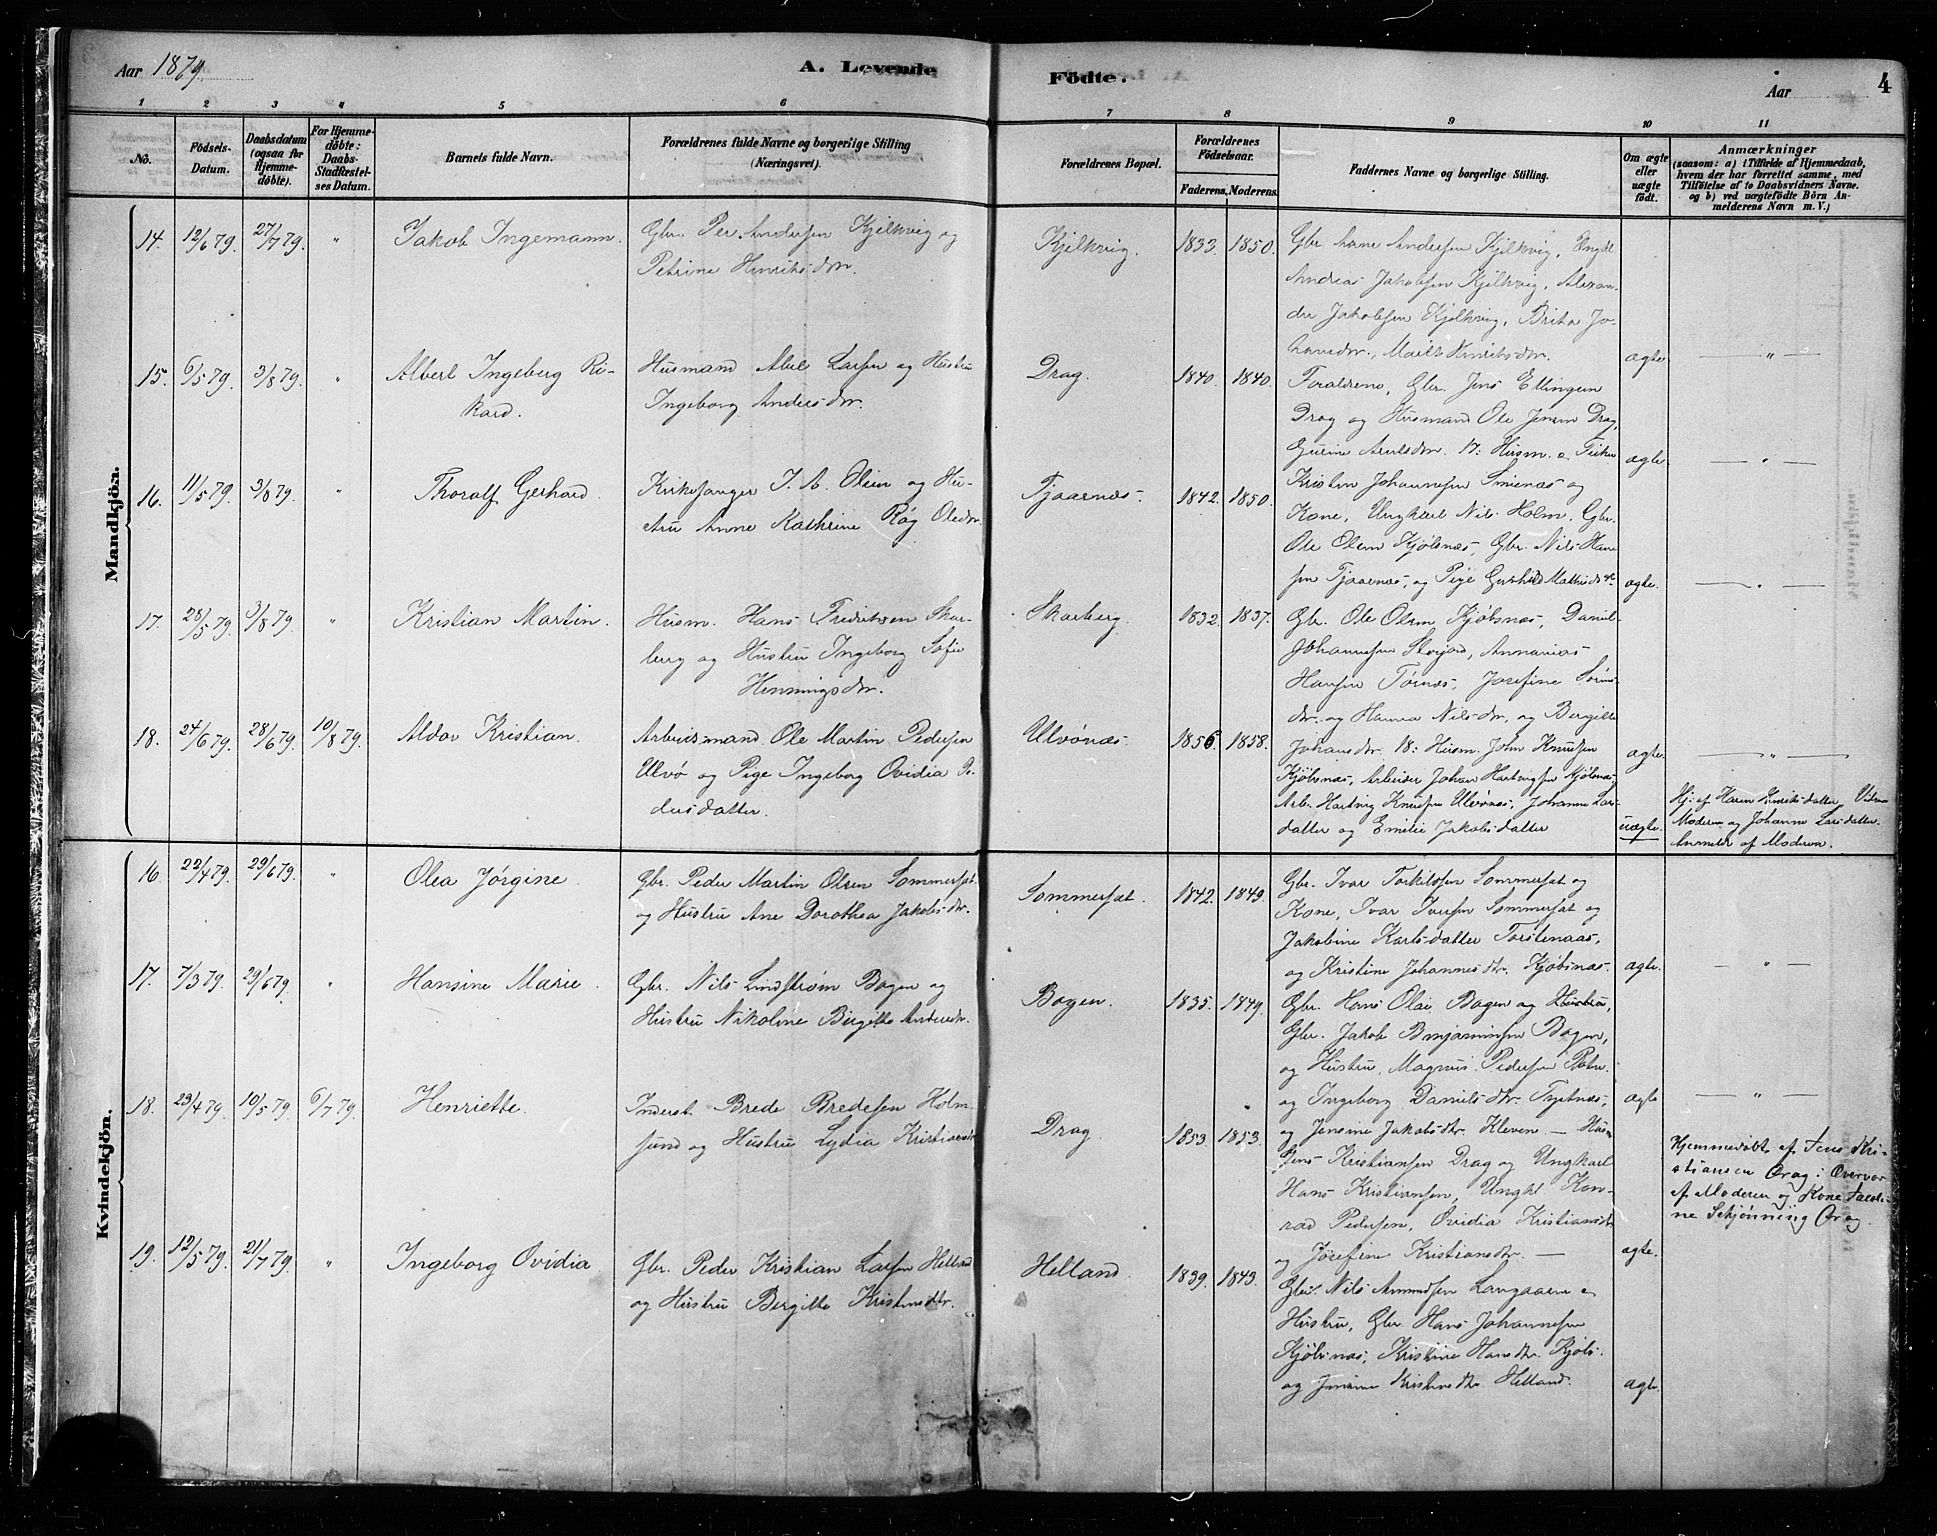 Aar 1879.
A. Levende
Födte.
Aar
4
1 2 3 4 5 6 7 8 9 10 11
No.
Födsels-Datum.
Daabsdatum (ogsaa for Hjemmedöbte).
For Hjemmedöbte: Daabs-Stadfæstelses Datum.
Barnets fulde Navn.
Forældrenes fulde Navne og borgerlige Stilling
(Næringsvei).
Forældrenes Bopæl.
Forældrenes Födselsaar.
Faderens. Moderens.
Faddernes Navne og borgerlige Stilling.
Om ægte eller uægte födt.
Anmærkninger
(saasom: a) i Tilfælde af Hjemmedaab,
hvem der har forrettet samme, med
Tilföielse af to Daabsvidners Navne.
og b) ved uægtefödte Börn Anmelderens Navn m. V.)
Mandkjön.
14. 12/6 79. 27/7 79. " Jakob Ingemann.
Gbr. Per Andersen Kjelkvig og
Petrine Henriksdtr.
Kjelkvig. 1833. 1850.
Gbr. Arne Andersen Kjelkvig, Ungkl.
Andreas Jakobsen Kjelkvig, Alexan-
der Jakobsen Kjelkvig, Brita Jo-
hansdtr., Marit Henriksdtr.
ægte. — " —
15. 6/5 79. 3/8 79. " Albert Ingeberg Ri-
kard.
Husmand Abel Larsen og Hustru
Ingeborg Andersdtr.
Drag. 1840. 1840.
Forældrene, Gbr. Jens Ellingsen
Drag og Husmand Ole Jensen Drag,
ægte. — " —
16. 11/5 79. 3/8 79. " Thoralf Gerhard.
Kirkesanger J. A. Olsen og Hu-
stru Anne Kathrine Røg Olsdtr.
Tjaarnes. 1842. 1850.
Kristen Johannesen Smienæs og
Kone, Ungkarl Nils Holm, Gbr.
Ole Olsen Kjøbsnæs, Gbr. Nils Han-
sen Tjaarnæs, og Pige Gurhild Mathisdtr.
ægte. — " —
17. 28/5 79. 3/8 79. " Kristian Martin.
Husm. Hans Fredriksen Skar-
berg og Hustru Ingeborg Sofie
Henningsdtr.
Skarberg. 1832. 1837.
Gbr. Ole Olsen Kjøbsnæs, Daniel
Johannesen Storjord, Annanias
Hansen Tørnæs, Josefine Søren-
dtr. og Hanna Nilsdtr. og Bergitte
Johansdtr. 18: Husm. John Knudsen
ægte. — " —
18. 24/6 79. 28/6 79. 10/8 79. Aldov Kristian.
Arbeidsmand Ole Martin Pedersen
Ulvø og Pige Ingeborg Ovidia Pe-
dersdatter.
Ulvønæs. 1856 1858.
Kjøbsnæs, Arbeider Johan Hartvigsen Kjøbsnæs,
Arb. Hartvig Knudsen Ulvønæs, Johanna Lars-
datter og Emilie Jakobsdatter
uægte.
Hj: af Haren Henriksdatter, Vidner
Moderen og Johanne Larsdatter.
Anmeldt af Moderen.
Kvindekjön.
16. 22/4 79. 29/6 79. " Olea Jørgine.
Gbr. Peder Martin Olsen Sommerset
og Hustru Ane Dorothea Jakobsdtr.
Sommerset. 1842. 1849.
Gbr. Ivar Torkildsen Sommerset og
Kone, Ivar Iversen Sommerset og
Jakobine Karlsdatter Torstenaas,
og Kristine Johannesdtr. Kjøbsnæs.
ægte. — " —
17. 7/3 79. 29/6 79. " Hansine Marie.
Gbr. Nils Lindstrøm Bogen og
Hustru Nikoline Birgitte Andersdtr.
Bogen. 1835. 1849.
Gbr. Hans Olai Bogen og Hustru,
Gbr. Jakob Benjaminsen Bogen,
og Hustru, Magnus Pedersen
og Ingeborg Danielsdtr.
ægte — " —
18. 23/4 79. 10/5 79. 6/7 79. Henriette.
Inderst Brede Bredesen Holm-
sund og Hustru Lydia Kristiansdtr.
Drag. 1853. 1853.
og Jensine Jakobsdtr. Kleven — Husm.
Jens Kristiansen Drag og Ungkarl
Hans Kristiansen, Ungkl. Kon-
rad Pedersen, Ovidia Kristiansdtr.
og Josefine Kristiansdtr. —
ægte.
Hjemmedøbt af Jens Kri-
stiansen Drag i Overvær
af Moderen og Kone
Schjønning Drag.
19. 12/5 79. 21/7 79. " Ingeborg Ovidia
Gbr. Peder Kristian Larsen Helland
og Hustru Bergitte Kristensdtr.
Helland. 1839. 1843.
Gbr. Nils Amundsen Langaaen og
Hustru, Gbr. Hans Johannesen
Kjøbsnæs, Kristine Hansdtr. Kjøbs.
og Jensine Kristensdtr. Helland.
ægte.